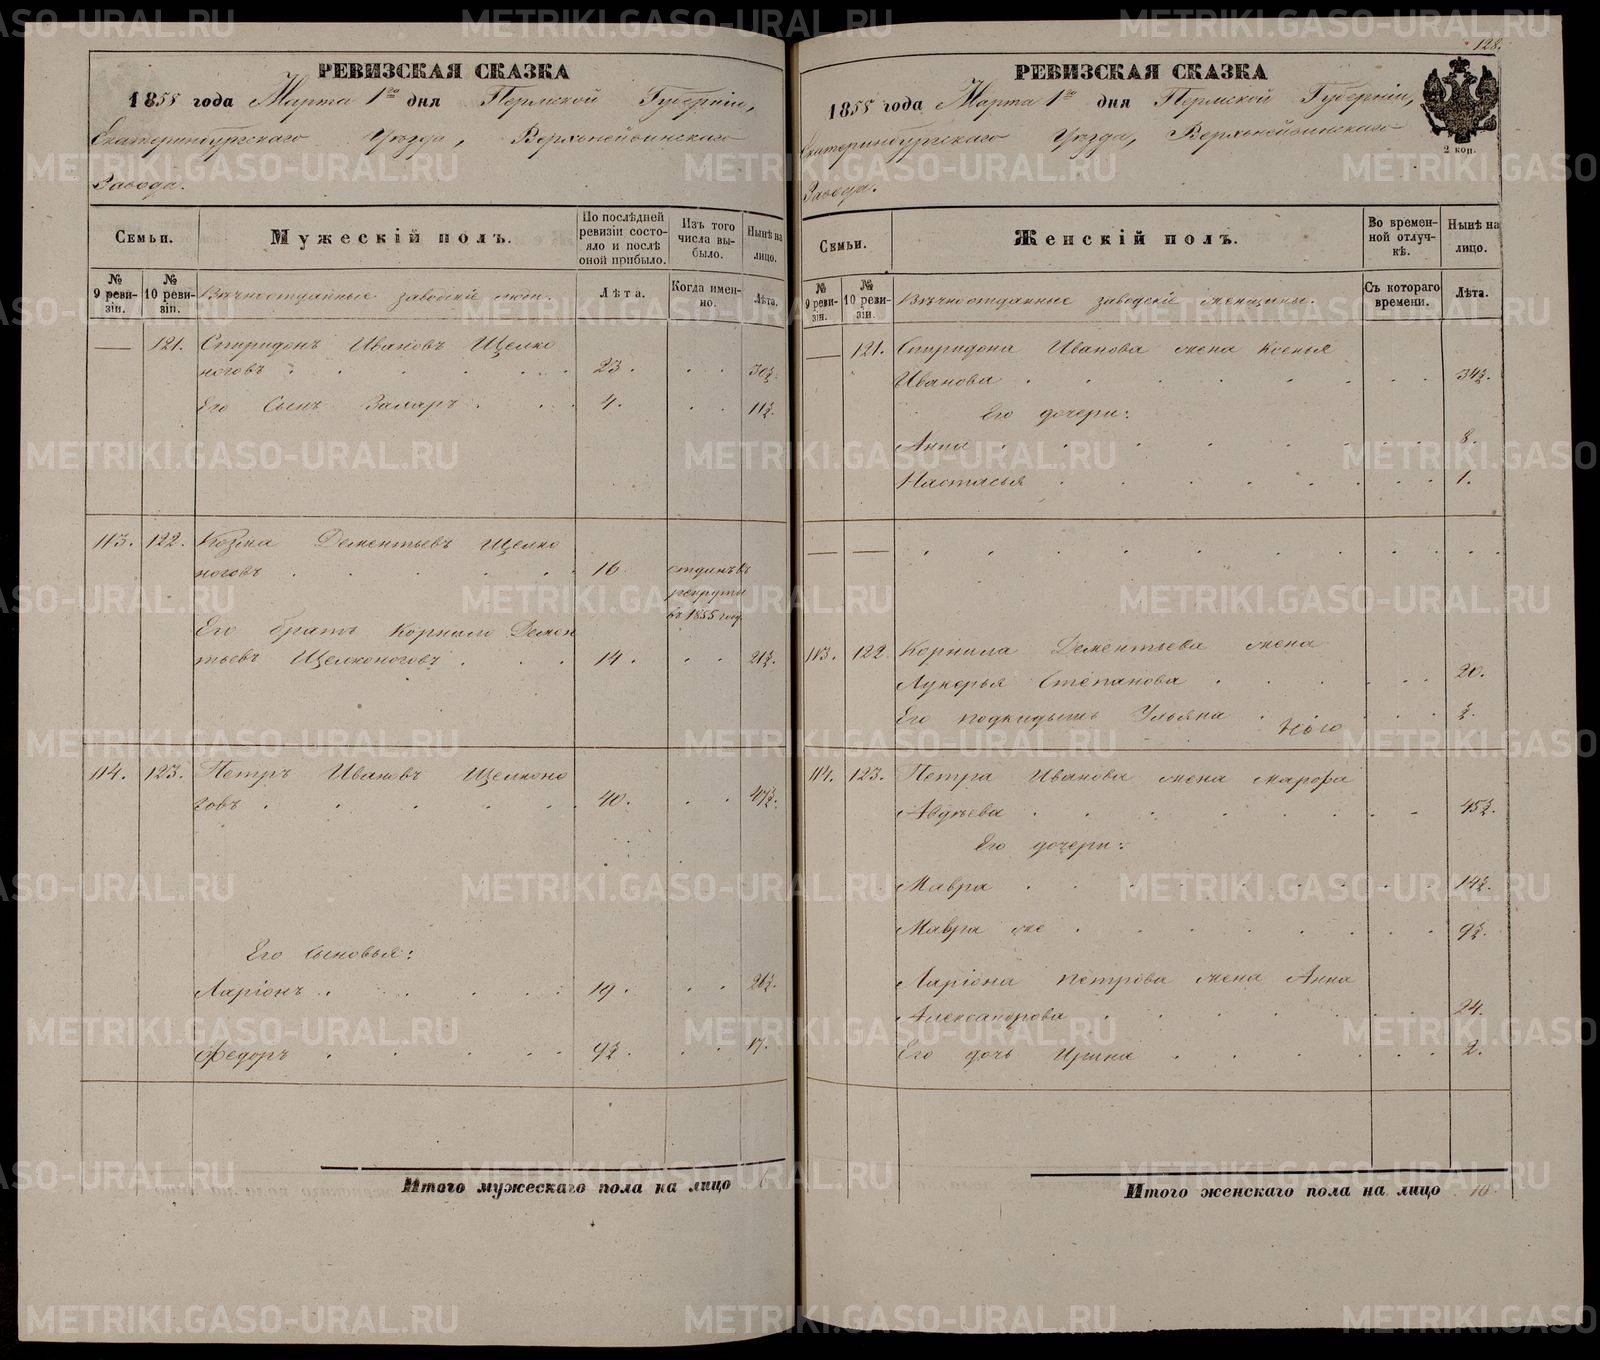 РЕВИЗСКАЯ СКАЗКА
1855 года Марта 1го дня Пермской Губерніи,
Екатеринбургскаго Уѣзда, Верхънейвинскаго
Завода.
Семьи.
Мужескій полъ.
По послѣдней ревизіи состояло и послѣ оной прибыло.
Изъ того числа выбыло.
Нынѣ на лицо.
№ 9 ревизіи.
№ 10 ревизіи.
Вѣчноотданные заводскіе люди.
Лѣта.
Когда именно.
Лѣта.
— 121. Спиридонъ Ивановъ Щелко
ноговъ 23. 30½.
Его Сынъ Захаръ 4. 11½.
113. 122. Козма Дементьевъ Щелко
ноговъ 16 отданъ въ
рекруты
въ 1855 году
Его братъ Корнило Демен
тьевъ Щелконоговъ 14. 21½.
114. 123. Петръ Ивановъ Щелконо
говъ 40. 47½.
Его сыновья:
Ларіонъ 19. 26½.
Федоръ 9½. 17.
Итого мужескаго пола на лицо 6
128.
РЕВИЗСКАЯ СКАЗКА
1855 года Марта 1го дня Пермской Губерніи,
Екатеринбургскаго Уѣзда, Верхънейвинскаго
Завода.
2 коп.
Семьи.
Женскій полъ.
Во временной отлучкѣ.
Нынѣ на лицо.
№ 9 ревизіи.
№ 10 ревизіи.
Вѣчноотданные заводскіе женщины.
Съ котораго времени.
Лѣта.
— 121. Спиридона Иванова жена Ксенья
Иванова 34½.
Его дочери:
Анна 8.
Настасья 1.
— —
113. 122. Корнила Дементьева жена
Лукерья Степанова 20.
Его подкидышъ Ульяна ½.
114. 123. Петра Иванова жена Марфа
Авдѣева 45½.
Его дочери:
Мавра 14½.
Мавра же 9½.
Ларіона Петрова жена Анна
Александрова 24.
Его дочь Ирина 2.
Итого женскаго пола на лицо 10.
METRIKI.GASO-URAL.RU